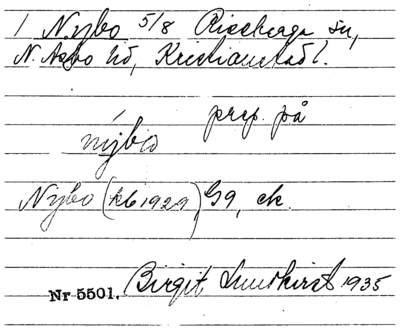 1 Nybo 5/8 Riseberga sn,
N. Åsbo hd, Kristianstads l.
prep. på
nybo
Nybo (kb 1929) G9, ek.
Nr 5501. Birgit Lundkvist 1935